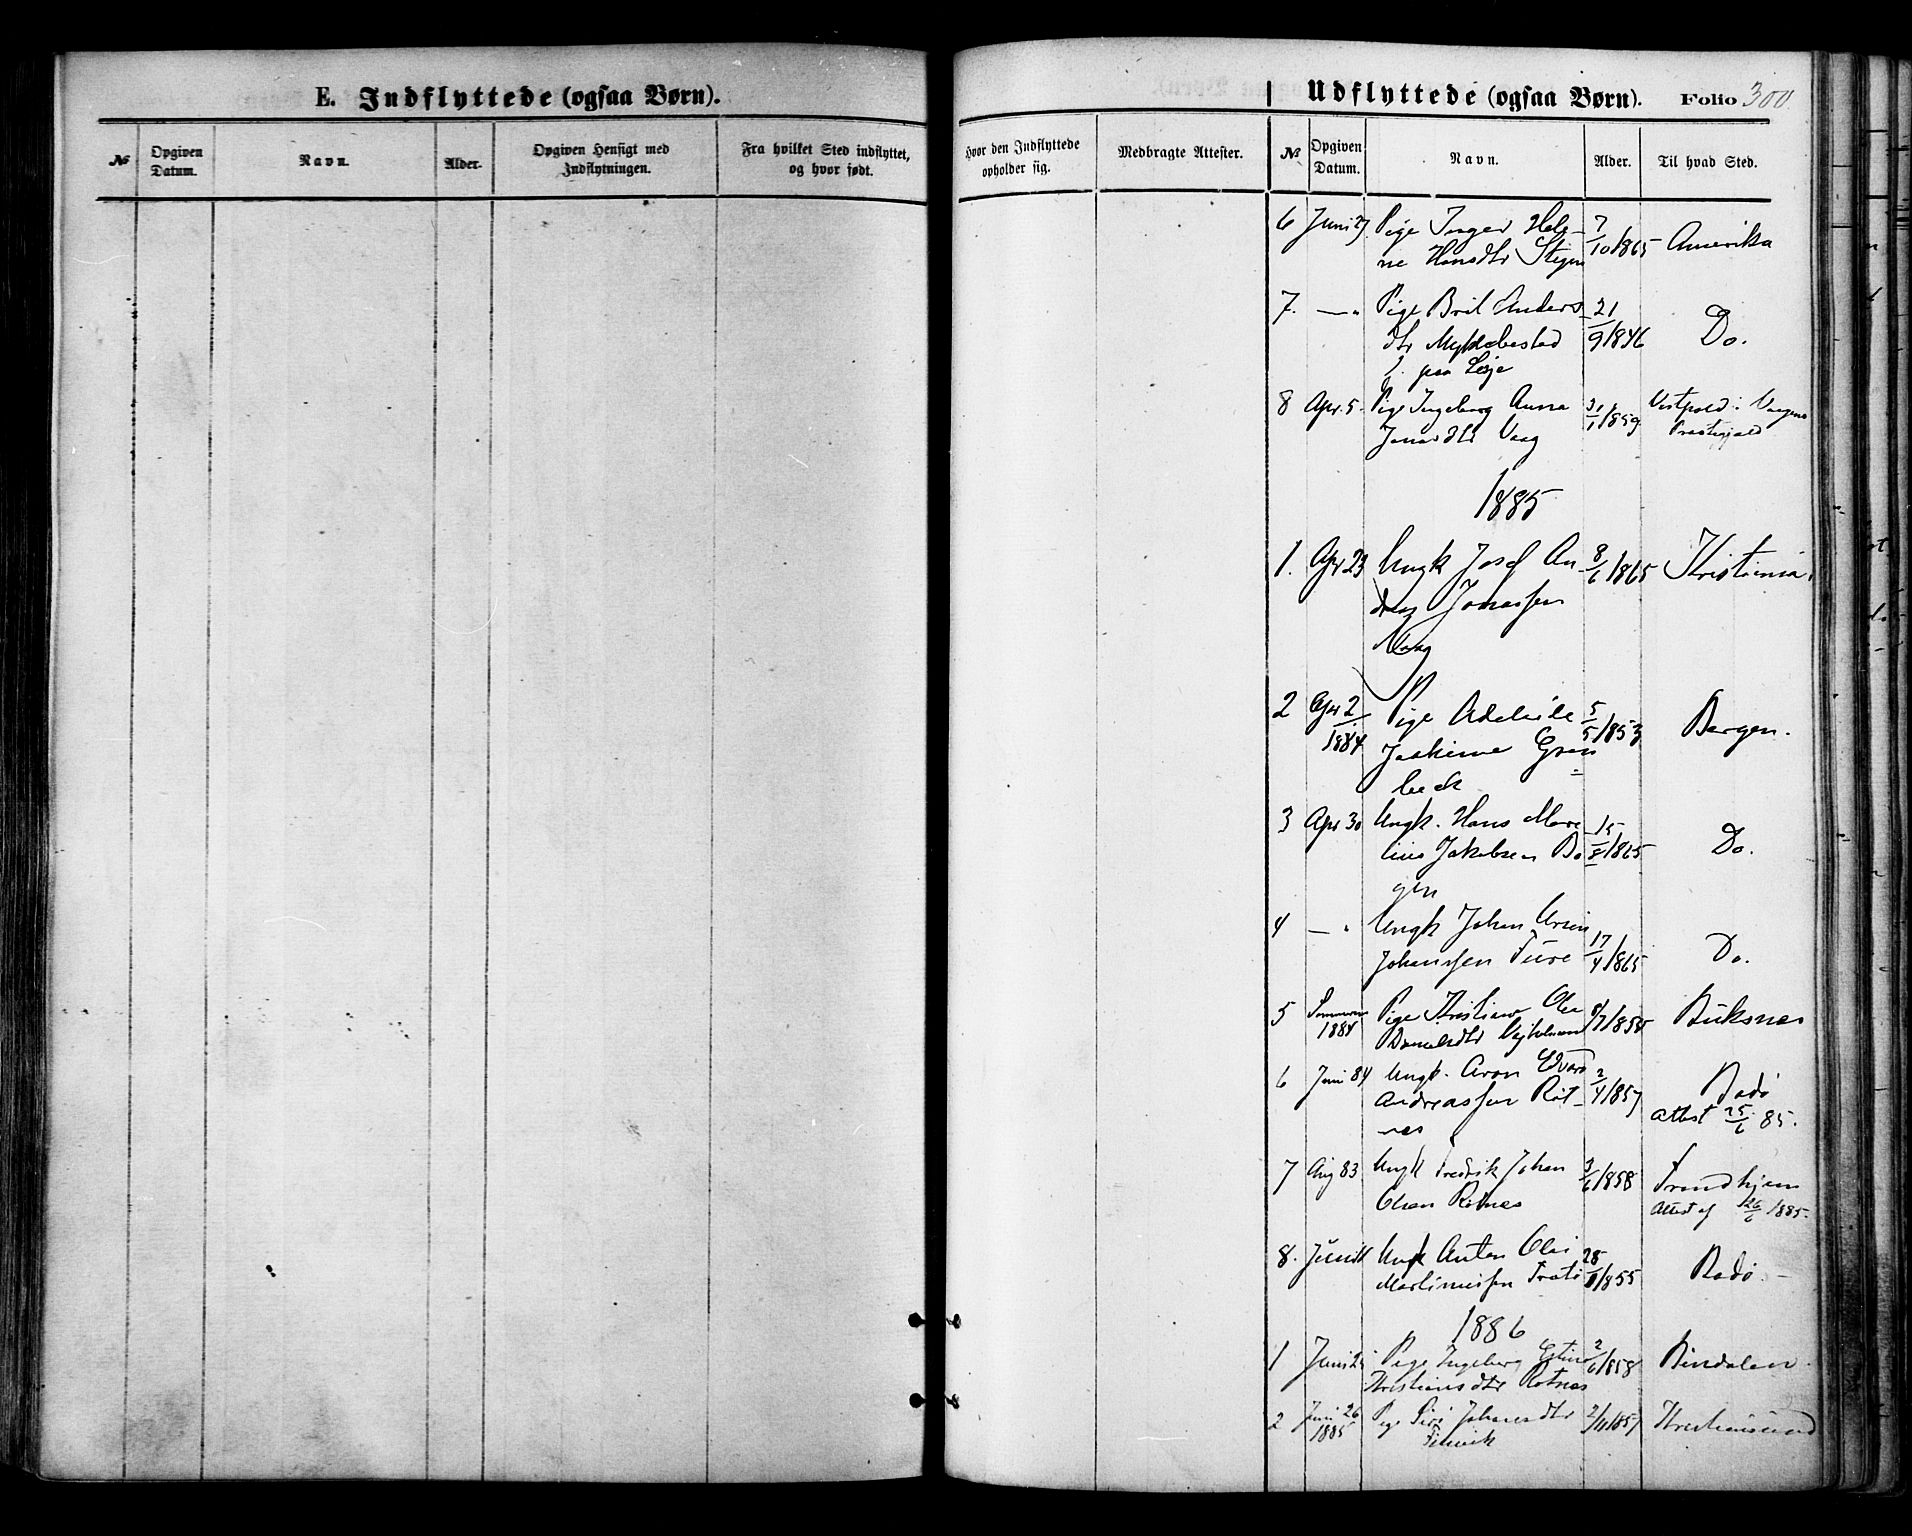 E. Indflyttede (ogsaa Børn).
№ Opgiven Datum. Navn. Alder. Opgiven Hensigt med Indflytningen. Fra hvilket Sted indflyttet, og hvor født.
Hvor den Indflyttede opholder sig. Medbragte Attester.
Udflyttede (ogsaa Børn). Folio 300.
№ Opgiven Datum. Navn. Alder. Til hvad Sted.
6 Juni 27 Pige Inger Hele- 7/10 1865 Amerika
ne Hansdtr
7. —„ Pige Brit Anders 21/9 1846 Do.
dtr Myklebostad
paa
8 Apr. 5. Pige Ingeborg Anna 31/1 1859
Jonasdtr Vaag Præstegjeld
1885
1. Apr 23 Ungk Josef An- 8/6 1865 Kristiania
dreas Jonassen
Vaag
2 Apr 2/1884 Pige Adeleide 5/5 1853 Bergen.
Joakime Grøn
beck
3 Apr 30 Ungk. Hans Mare 15/8 1865 Do.
lius Jakobsen Bo
gen
4 —„ Ungk Johan Ursin 17/4 1865 Do.
Johanssen
5 Sommeren Pige Kristine Buksnes
1884 Danielsdtr
6 Juni 84 Ungk. Aron Edvard 2/4 1857 Bodø
Andreassen Røt- Attest 25/6 85.
nes
7 Aug 83 Ungk Fredrik Johan 3/6 1858 Trondhjem
Olsen Røtnes Attest af 26/6 1885.
8. Juni Ungk Anton Olai 28 1855 Bodø.
Martinussen
1886
1 Juni Pige Ingeborg 2/6 1858 Bindalen.
Kristiansdtr Røtnes
2 Juni 26 Pige Siri Johansdtr 2/11 1857 Kristiansund
1885